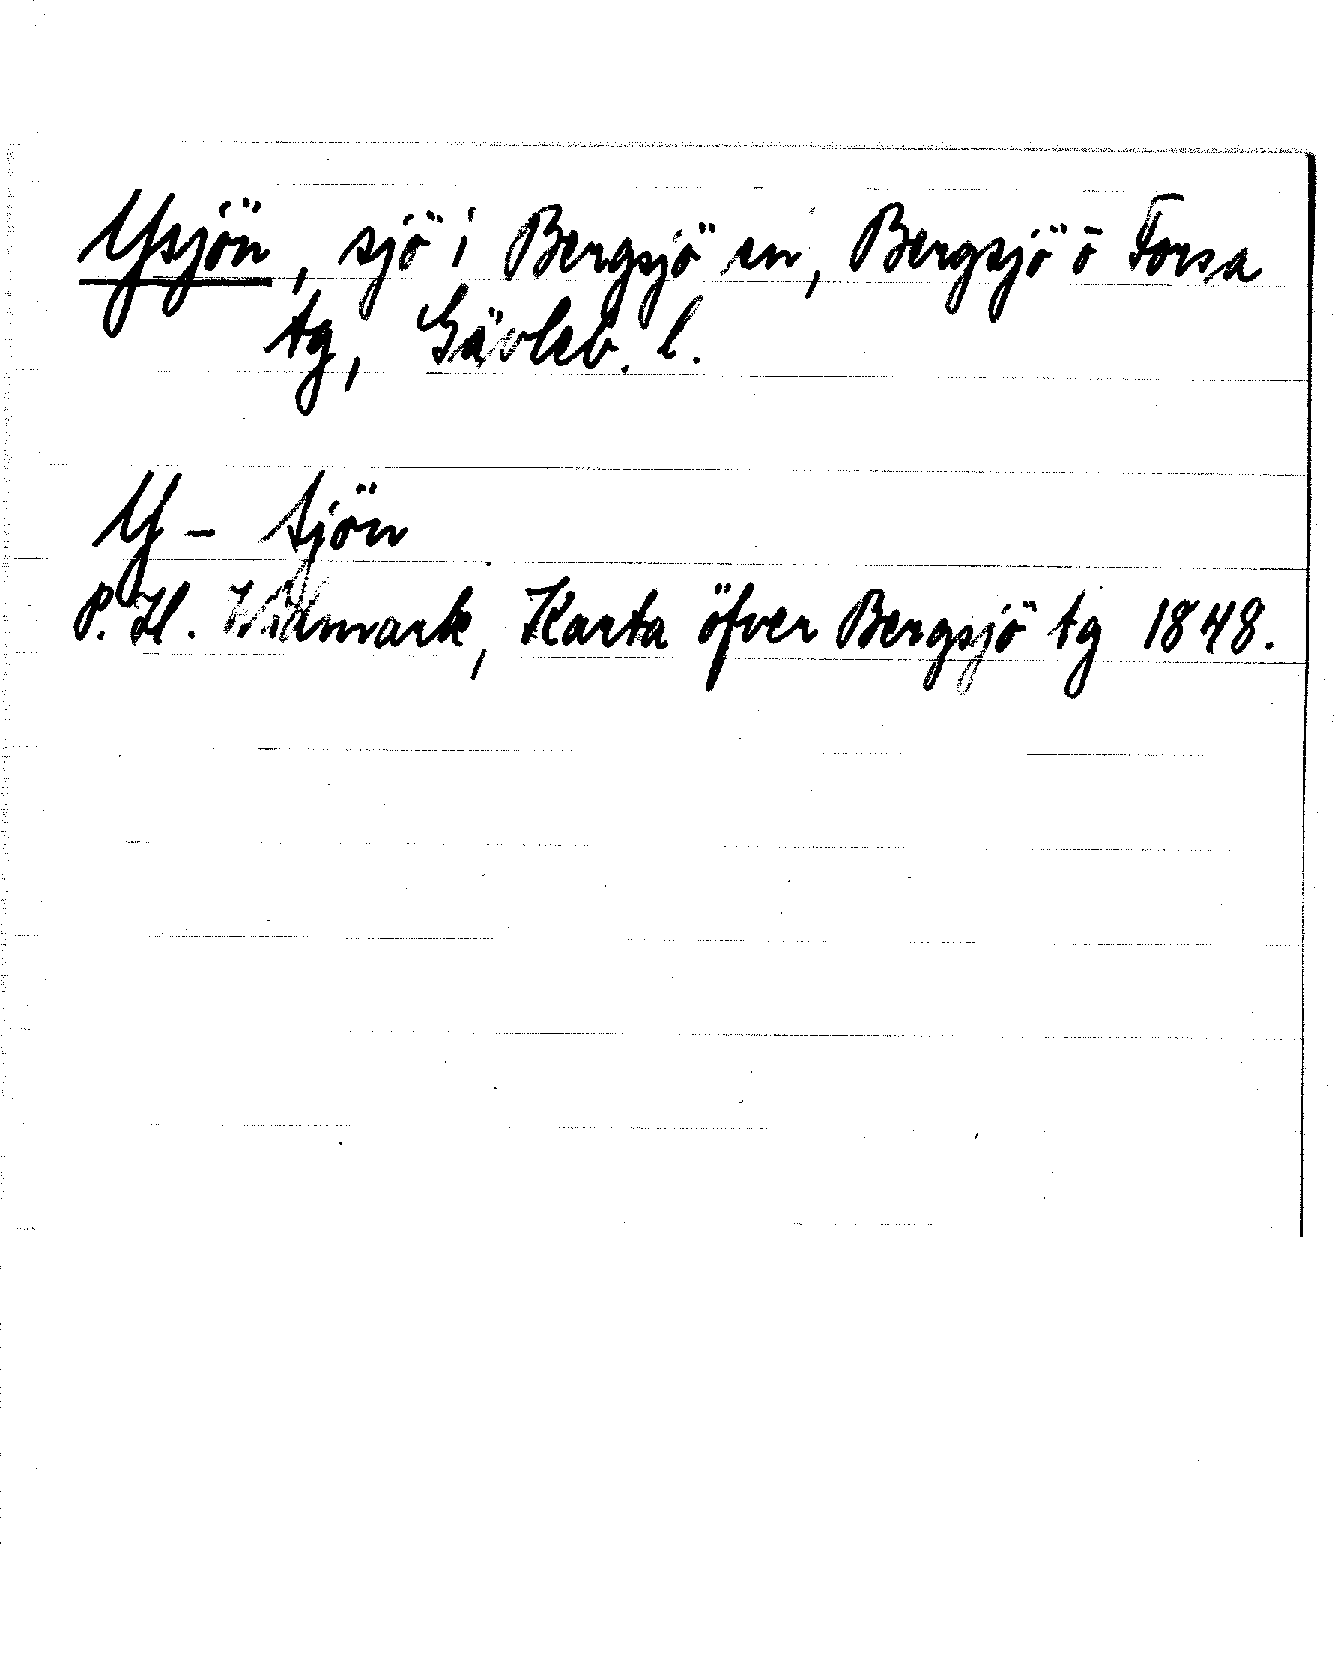 Ysjön, sjö i Bergsjö sn, Bergsjö o Forsa
tg, Gävleb. l.
Y - sjön
P. H. Widmark, Karta öfver Bergsjö tg 1848.